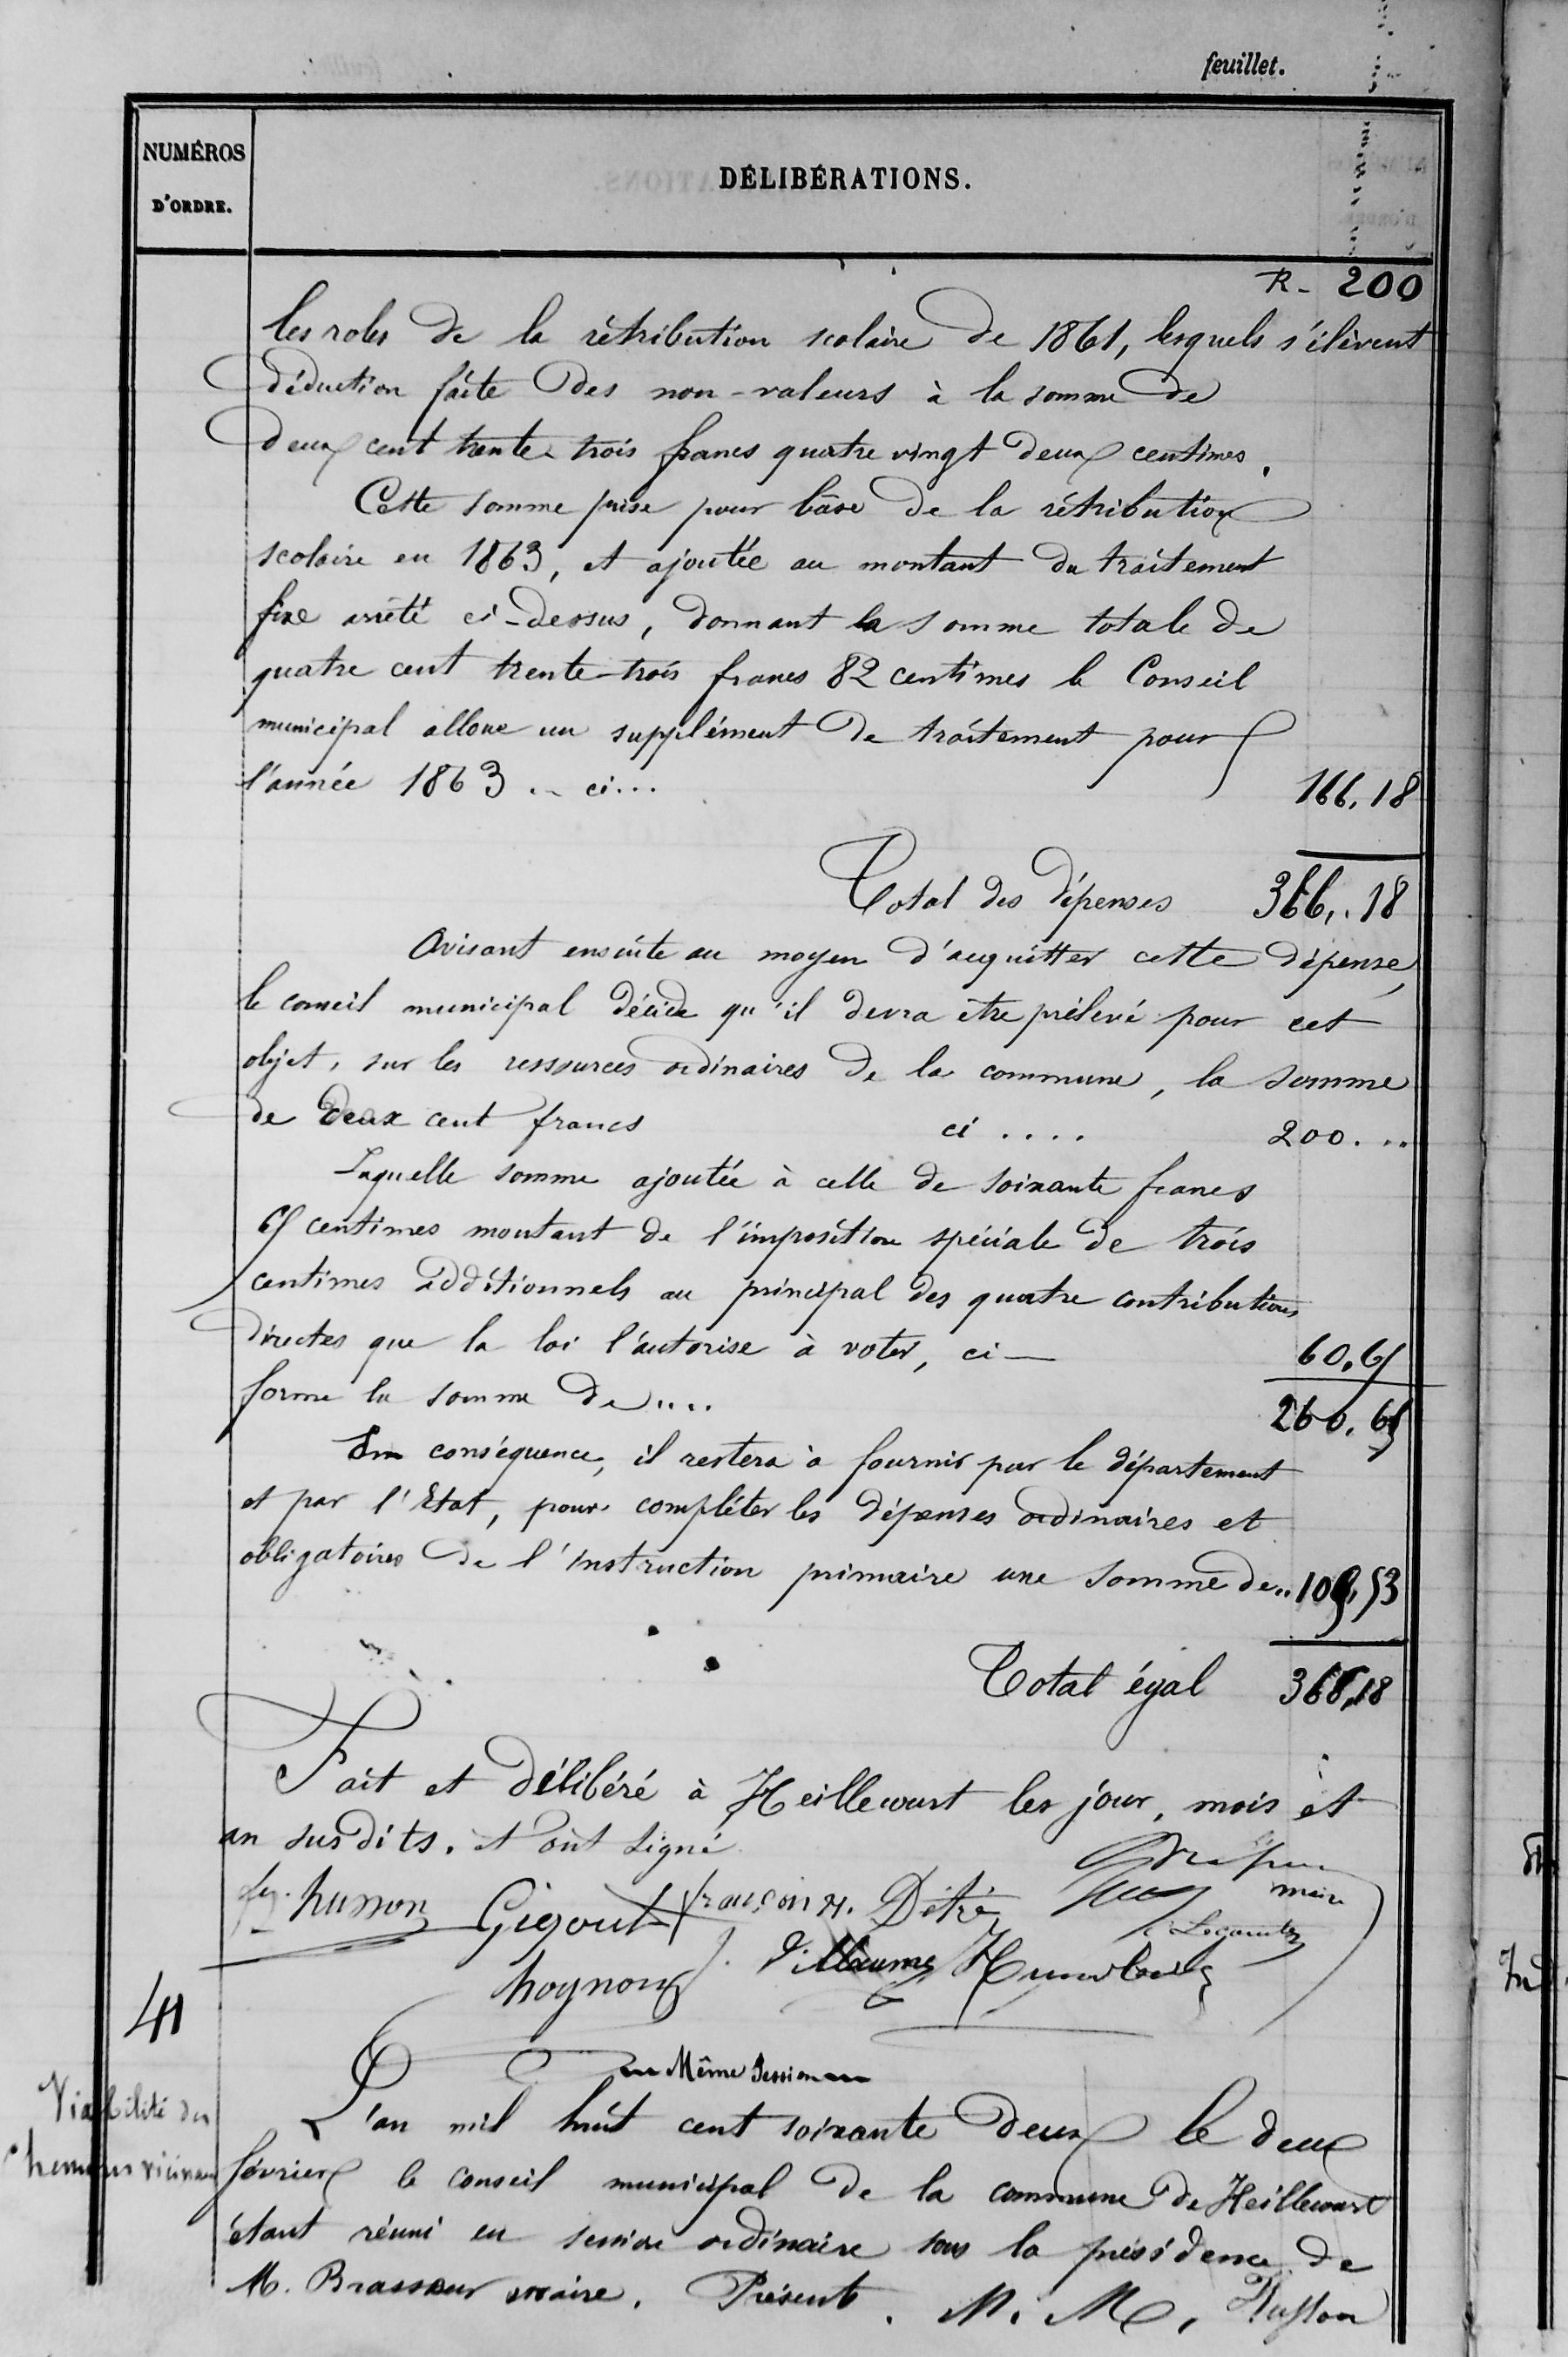 feuillet.
NUMÉROS
D'ORDRE.
DÉLIBÉRATIONS.
R - 200
les roles de la rétribution scolaire de 1861, lesquels s'élèvent
déduction faite des non-valeurs à la somme de
deux cent trente trois francs quatre vingt deux centimes.
Cette somme prise pour bâse de la rétribution
scolaire en 1863, et ajoutée au montant du traitement
fixe arrêté ci-dessus, donnant la somme totale de
quatre cent trente-trois francs 82 centimes le Conseil
municipal alloue un supplément de traitement pour
l'année 1863 .. ci... 166,18
Total des dépenses 366,.18
Avisant ensuite au moyen d'acquitter cette dépense,
le conseil municipal décide qu'il devra être prélevé pour cet
objet, sur les ressources ordinaires de la commune, la somme
de deux cent francs ci .... 200...
Laquelle somme ajoutée à celle de soixante francs
65 centimes montant de l'imposition spéciale de trois
centimes additionnels au principal des quatre contributions
directes que la loi l'autorise à voter, ci — 60,65
forme la somme de .... 260,65
En conséquence, il restera à fournir par le département
et par l'Etat, pour compléter les dépenses ordinaires et
obligatoires de l'instruction primaire une somme de.. 105,53
Total égal 366,18
Fait et délibéré à Heillecourt les jour, mois et
an susdits. et ont signé
husson Gigout françois N. Détré maire
hognon J. Villaume
41
Même Session
Viabilité des
Chemins vicinaux
L'an mil huit cent soixante deux le deux
février le conseil municipal de la commune de Heillecourt
étant réuni en session ordinaire sous la présidence de
M. Brasseur maire. Présents. M. M. Husson